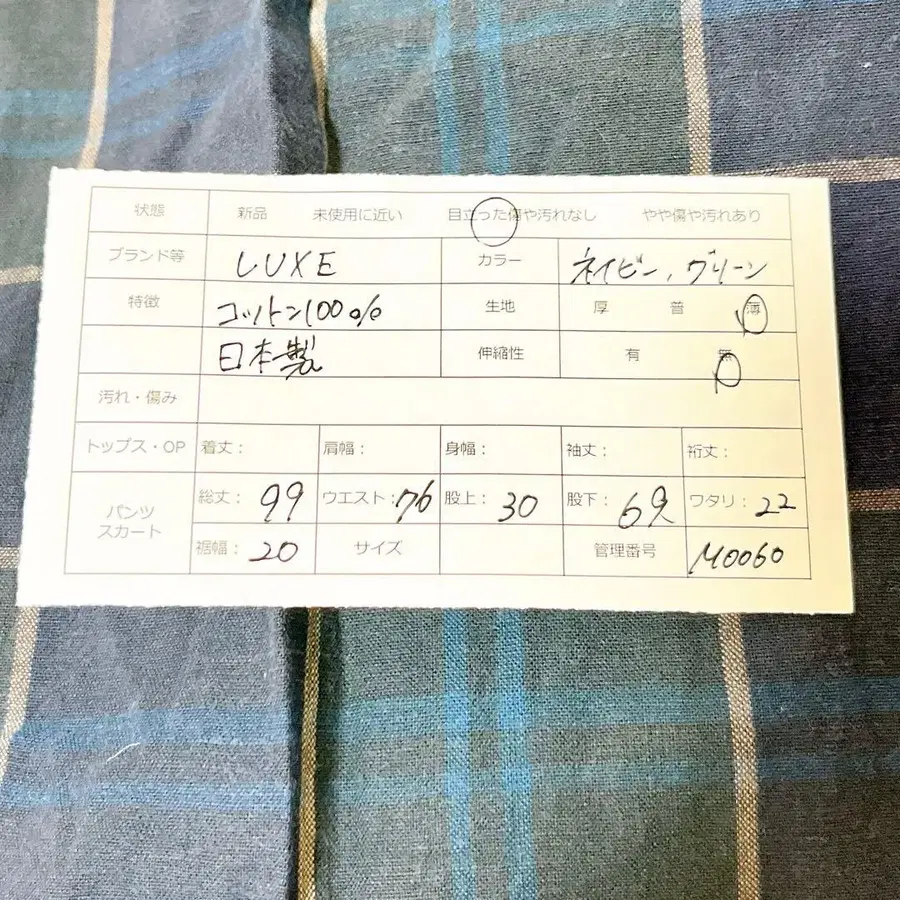 状態 新品 未使用に近い 目立った傷や汚れなし やや傷や汚れあり
ブランド等 LUXE カラー ネイビー、グリーン
特徴 コットン100% 生地 厚 普 薄
日本製 伸縮性 有 無
汚れ・傷み
トップス・OP 着丈: 肩幅: 身幅: 袖丈: 裄丈:
パンツ スカート 総丈: 99 ウエスト: 76 股上: 30 股下: 69 ワタリ: 22
裾幅: 20 サイズ 管理番号 M0060